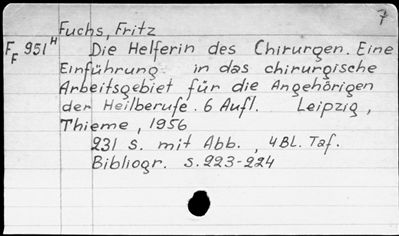 7
Fuchs, Fritz
F_F 951^H Die Helferin des Chirurgen. Eine
Einführung in das chirurgische
Arbeitsgebiet für die Angehörigen
der Heilberufe. 6 Aufl. Leipzig,
Thieme, 1956
231 s. mit Abb., 4 Bl. Taf.
Bibliogr. s. 223-224